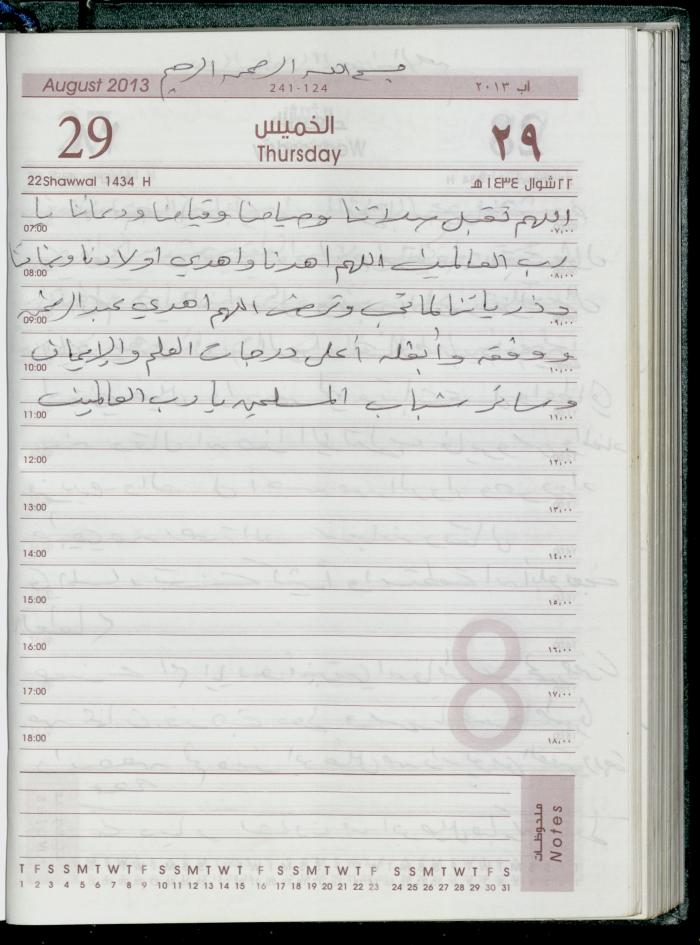 بسم الله الرحمن الرحيم
August 2013 241-124 آب ٢٠١٣
29 الخميس ٢٩
Thursday
22Shawwal 1434 H ٢٢شوال ١٤٣٤ هـ
اللهم تقبل صلاتنا وصيامنا وقيامنا ودعائنا يا
07:00 ٠٧,٠٠
رب العالمين اللهم اهدنا واهدي اولادنا وبناتنا
08:00 ٠٨,٠٠
وذرياتنا لما تحب وترضى اللهم اهدي عبدالرحمن
09:00 ٠٩,٠٠
ووفقه وأبلغه أعلى درجات العلم والإيمان
10:00 ١٠,٠٠
وسائر شباب المسلمين يا رب العالمين
11:00 ١١,٠٠
12:00 ١٢,٠٠
13:00 ١٣,٠٠
14:00 ١٤,٠٠
15:00 ١٥,٠٠
16:00 ١٦,٠٠
17:00 ١٧,٠٠
18:00 ١٨,٠٠
8
ملحوظات
Notes
T F S S M T W T F S S M T W T F S S M T W T F S S M T W T F S
1 2 3 4 5 6 7 8 9 10 11 12 13 14 15 16 17 18 19 20 21 22 23 24 25 26 27 28 29 30 31